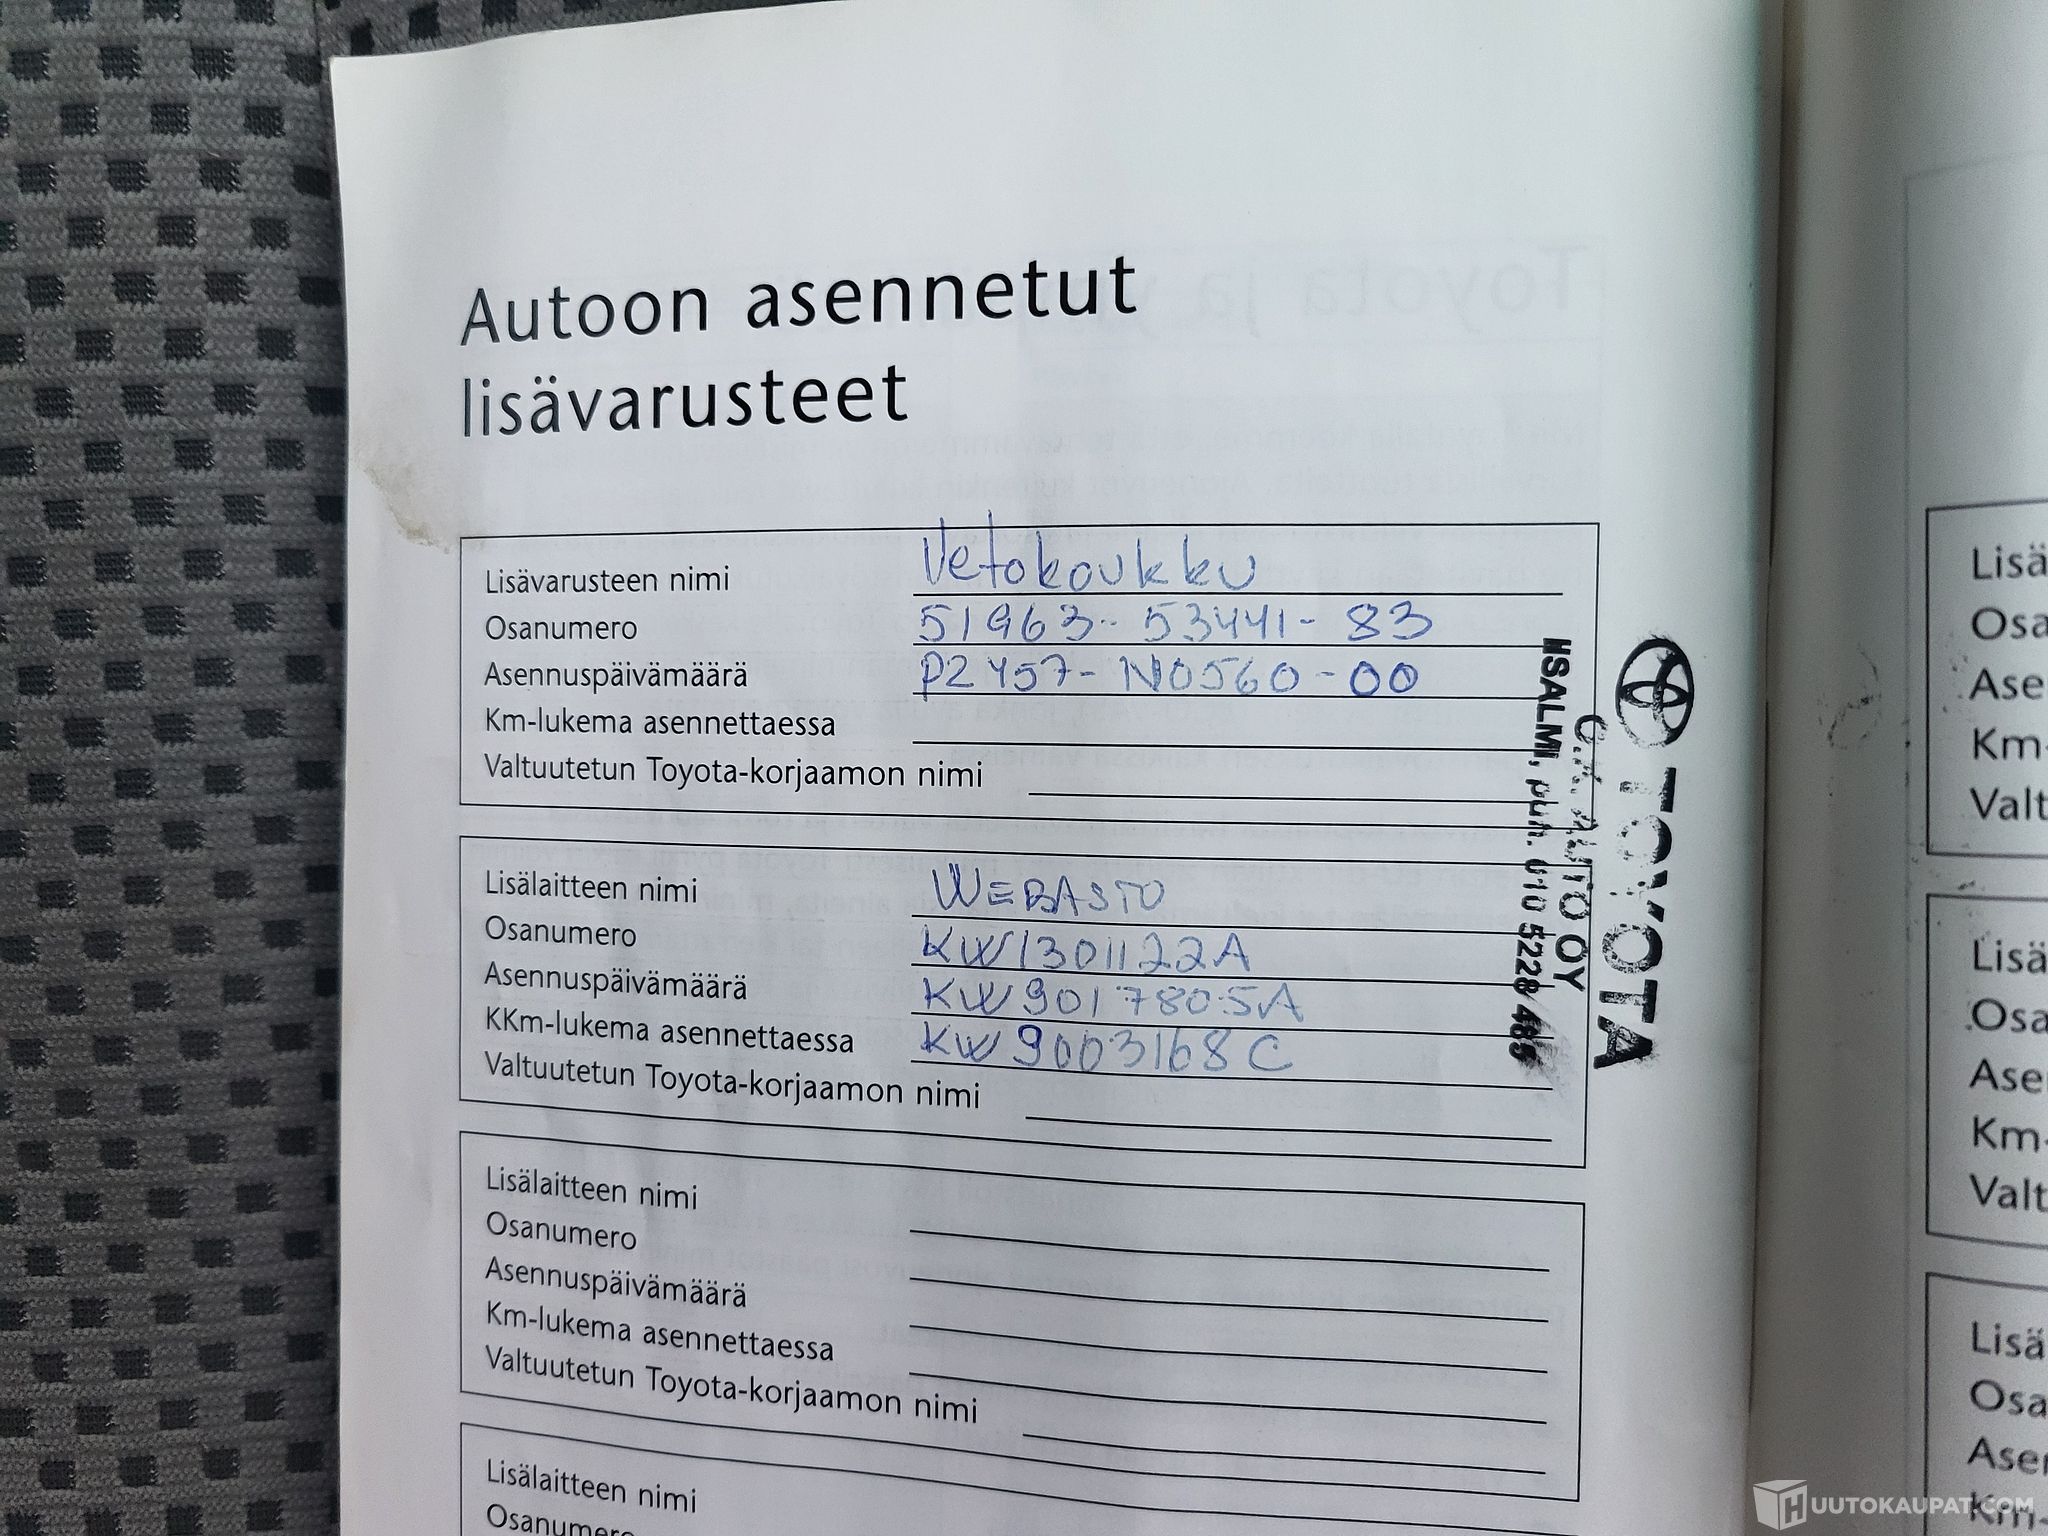 Autoon asennetut
lisävarusteet
Lisävarusteen nimi Vetokoukku
Osanumero 51963-53441-83
Asennuspäivämäärä PZ457-N0560-00
Km-lukema asennettaessa
Valtuutetun Toyota-korjaamon nimi
Lisälaitteen nimi WEBASTO
Osanumero KW1301122A
Asennuspäivämäärä KW9017805A
KKm-lukema asennettaessa KW9003168C
Valtuutetun Toyota-korjaamon nimi
TOYOTA
AUTO OY
IISALMI, puh. 010 5228
Lisälaitteen nimi
Osanumero
Asennuspäivämäärä
Km-lukema asennettaessa
Valtuutetun Toyota-korjaamon nimi
Lisälaitteen nimi
Osanumero
Lisä
Osa
Ase
Km-
Valt
Lisä
Osa
Ase
Km-
Valt
Lisä
Osa
Asen
Km-
HUUTOKAUPAT.COM